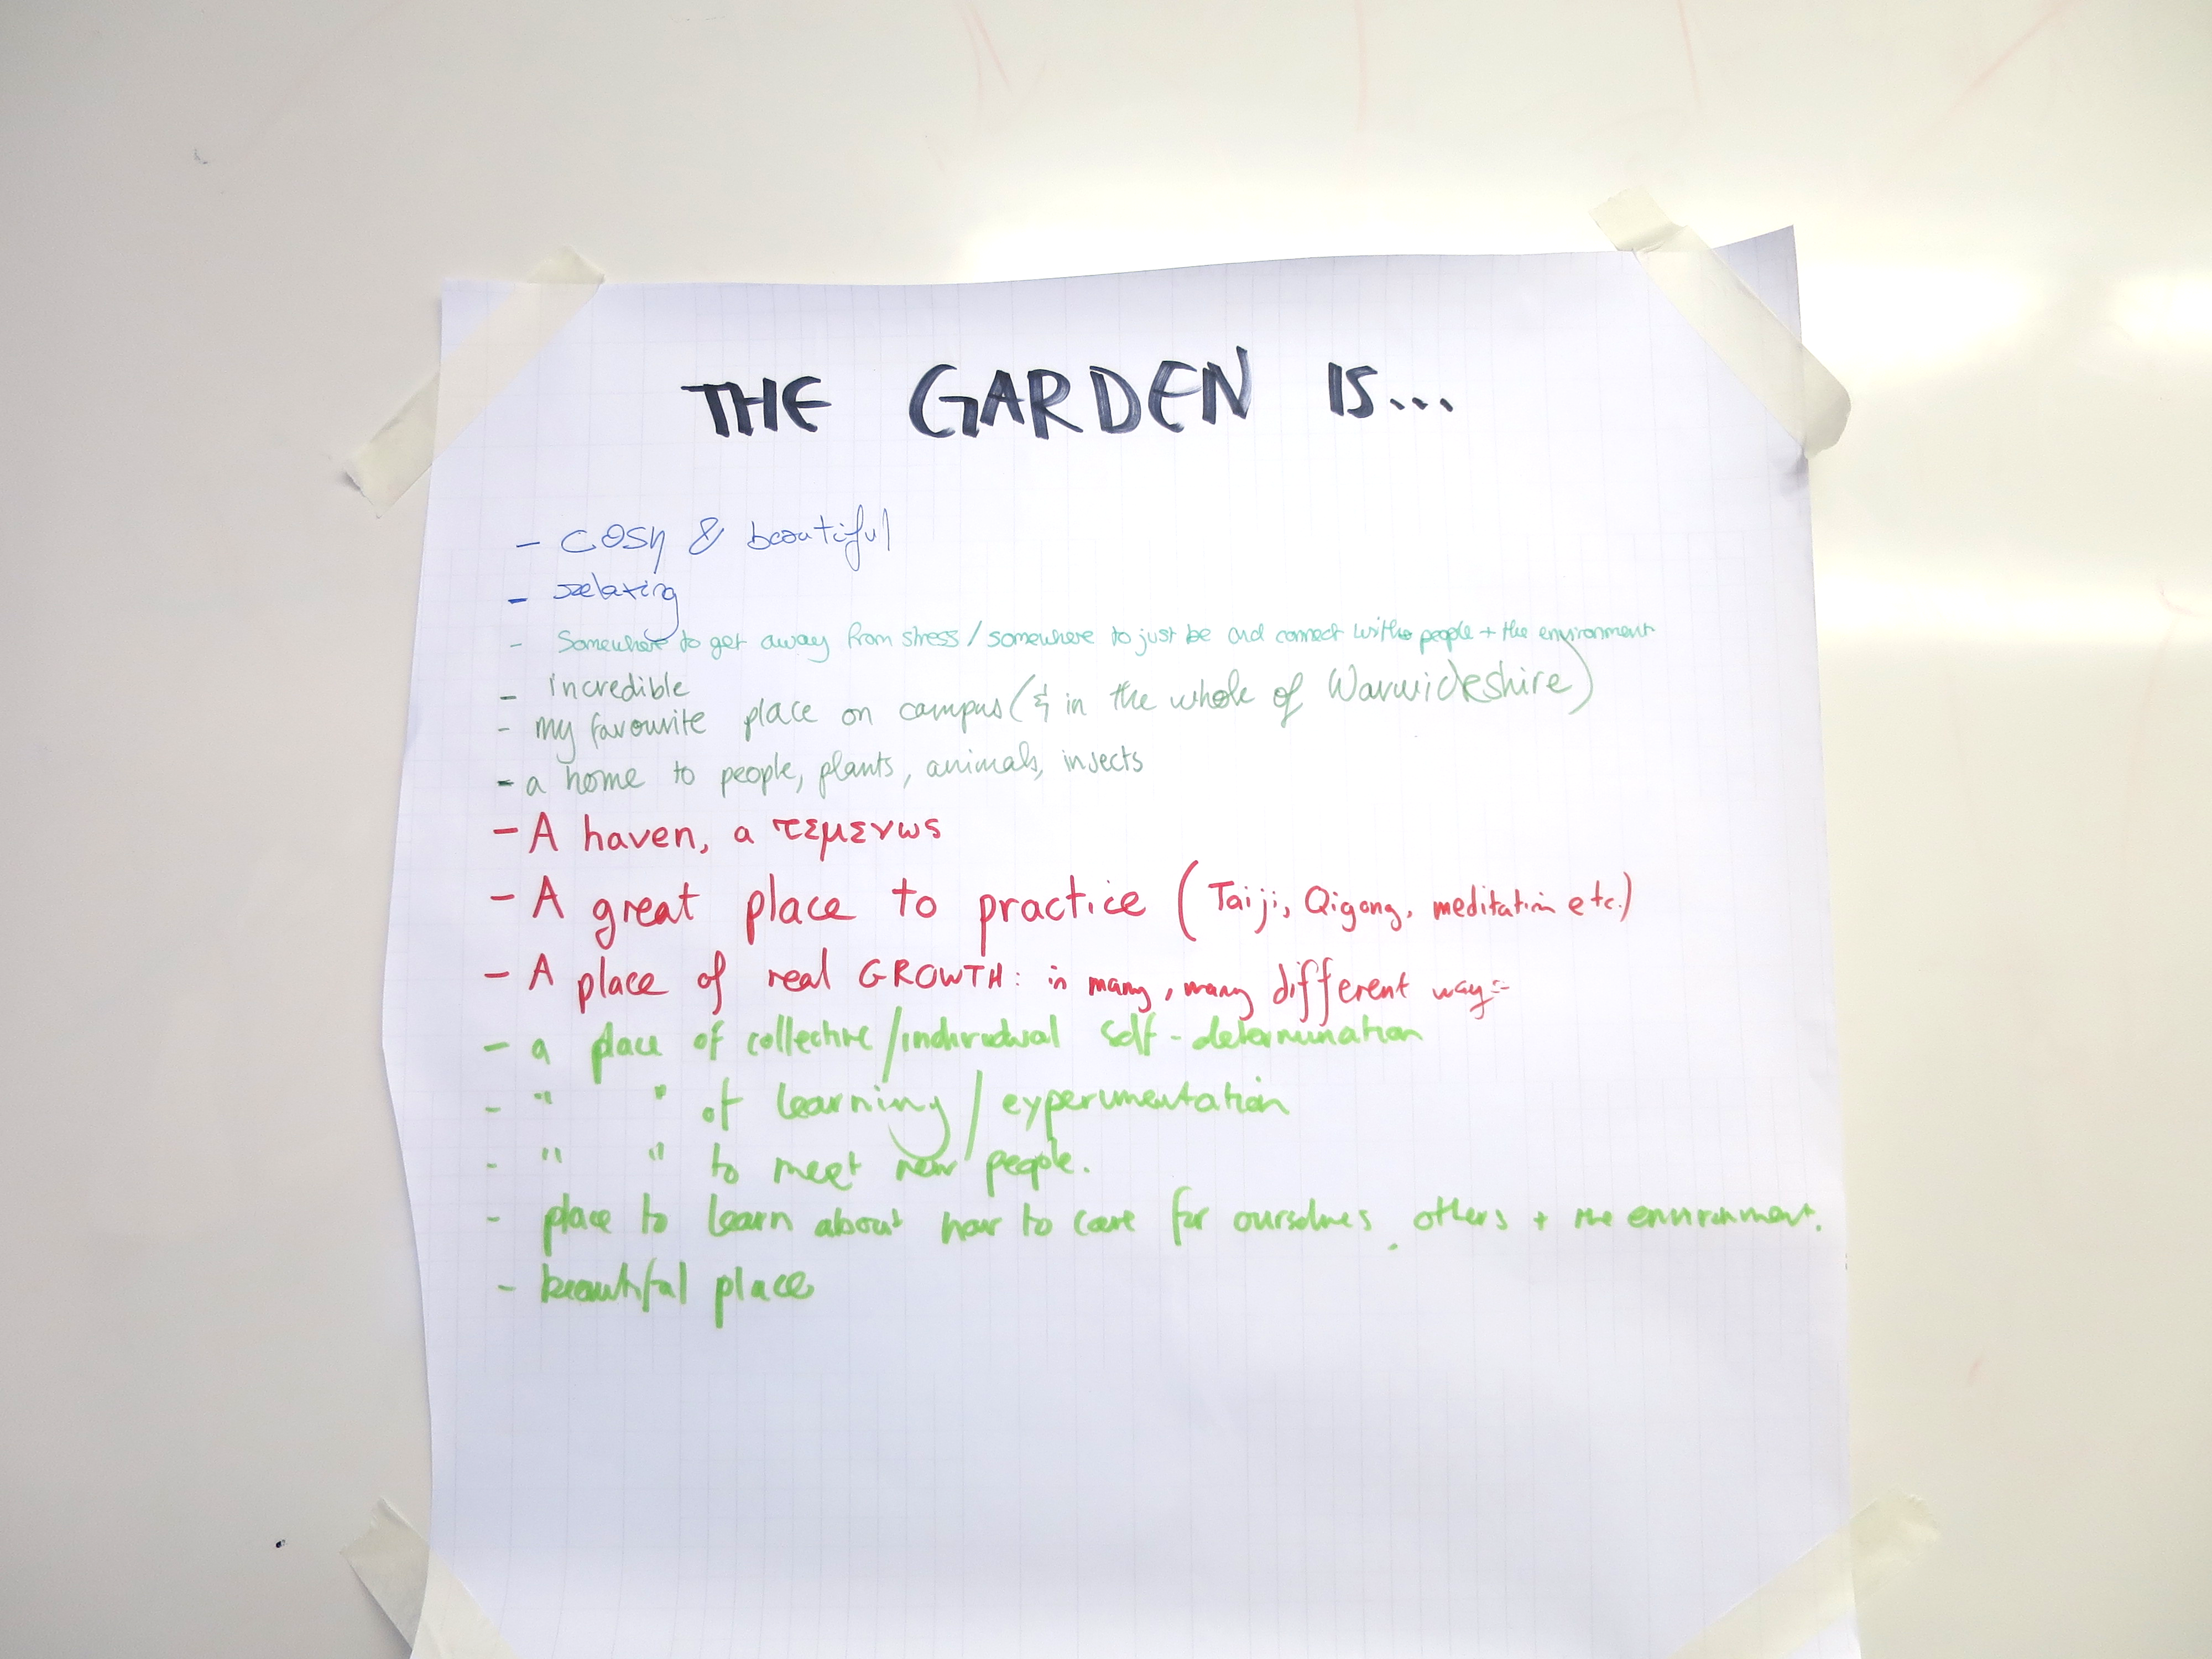 THE GARDEN IS...
- cosy & beautiful
- relaxing
- Somewhere to get away from stress / somewhere to just be and connect with people + the environment
- incredible
- my favourite place on campus (& in the whole of Warwickshire)
- a home to people, plants, animals, insects
- A haven, a τεμενως
- A great place to practice (Taiji, Qigong, meditation etc.)
- A place of real GROWTH: in many, many different ways
- a place of collective/individual self-determination
- " " of learning / experimentation
- " " to meet new people.
- place to learn about how to care for ourselves, others + the environment.
- beautiful place